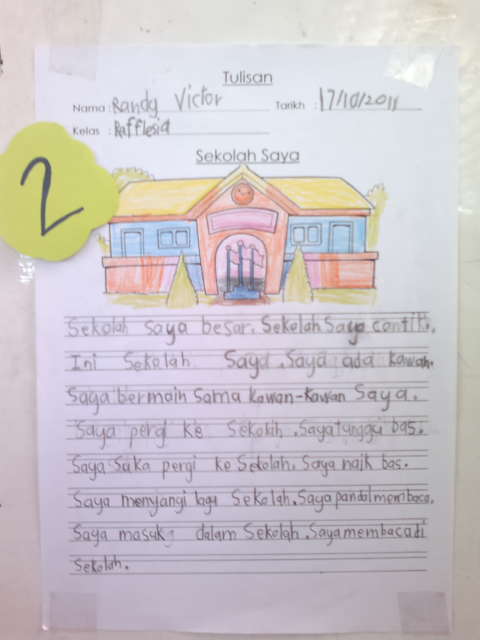 Tulisan
Nama : Randy Victor Tarikh : 17/10/2011
Kelas : Rafflesia
2
Sekolah Saya
Sekolah saya besar. Sekolah Saya cantik.
Ini Sekolah Saya. Saya ada kawan.
Saya bermain Sama kawan-kawan Saya.
Saya pergi ke Sekolah. Saya tunggu bas.
Saya Suka pergi ke Sekolah. Saya naik bas.
Saya menyanyi lagu Sekolah. Saya pandai membaca.
Saya masuk dalam Sekolah. Saya membaca di
Sekolah.